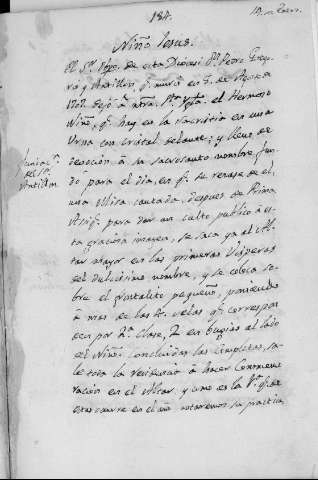 184.
Niño Jesus.
El Sr. Obpo. de esta Diocesi Dn. Pedro
y q. murió en 3. de
1707. dejó á ntra. Sta. Ygla. el Hermoso
Niño, q. hay en la Sacristia en una
Urna con cristal delante; y lleno de
devocion á su sacrosanto nombre, fun-
dó para el dia, en q. se reza de el,
una Misa cantada, despues de Prima
para dar un culto publico á es-
ta graciosa imagen, se saca ya al Al-
tar mayor en las primeras Visperas
del dulcisimo nombre, y se coloca so-
bre el pequeño, poniendo
á mas de las velas q. correspon
den por 2a. Clase, 2 en bugias al lado
del Niño. Concluidas las Completas, sa-
le toda la residencia á hacer Conmemo
ración en el Altar y como es la 1a. q. de
estas ocurre en el año notaremos su practica,
del Sr.